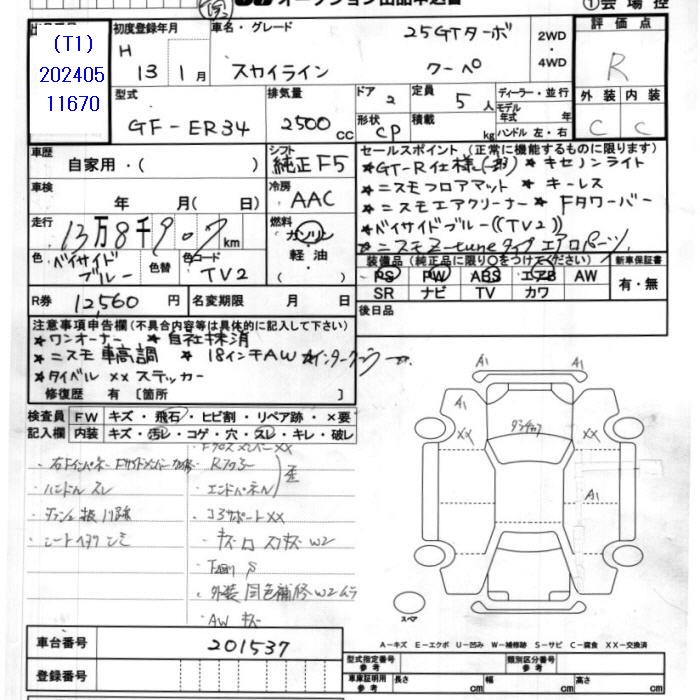 オークション出品申込書
①会場控
(T1)
202405
11670
初度登録年月
車名・グレード
25GTターボ
2WD
・
4WD
評価点
H
13 1月
スカイライン
クーペ
R
型式
排気量
ドア 2
定員 5人
ディーラー・並行
外装 内装
GF-ER34
2500cc
形状 CP
積載 kg
モデル年式 年
ハンドル 左・右
C C
車歴
シフト
セールスポイント(正常に機能するものに限ります)
自家用・( )
純正F5
*GT-R仕様 * キセノンライト
車検
冷房
*ニスモフロアマット * キーレス
年 月( 日)
AAC
*ニスモエアクリーナー * Fタワーバー
走行
燃料
*ベイサイドブルー((TV2))
13万8千9 0 7km
ガソリン
軽油
・( )
*ニスモZ-tuneタイプエアロパーツ
色 ベイサイドブルー
色替
色コード TV2
装備品(純正品に限り○をつけてください)
新車保証書
PS PW ABS エアB AW
有・無
SR ナビ TV カワ
R券 12,560円
名変期限 月 日
後日品
注意事項申告欄(不具合内容等は具体的に記入して下さい)
*ワンオーナー * 自社抹消
*ニスモ車高調 * 18インチAW
*タイベル xx ステッカー
修復歴 有[箇所 ]
検査員 FW キズ・飛石・ヒビ割・リペア跡・×要
記入欄 内装 キズ・汚レ・コゲ・穴・スレ・キレ・破レ
・ハンドルスレ
・エンドパネル
・コアサポートXX
・外装 同色補修W2ムラ
・AW キズ
A1
A1
XX
XX
A1
スペア
A-キズ E-エクボ U-凹み W-補修跡 S-サビ C-腐食 XX-交換済
車台番号 201537
登録番号
型式指定番号 参考
類別区分番号 参考
車庫証明用 参考
長さ cm
幅 cm
高さ cm